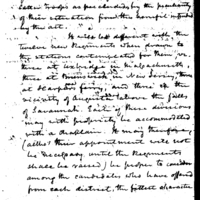 latter Troops are precluded by the peculiarity
of their situation from the benefit intended
by the act.
It will be different with the
twelve new Regiments when drawn to
the stations contemplated for them viz.
three at Uxbridge in Massachusetts,
three at Brunswick in New Jersey, three
at Harpers ferry, and three in the
vicinity of Augusta above the falls
of Savannah. Each of these divisions
may with propriety be accommodated
with a chaplain. It may therefore,
(altho' their appointment will not
be necessary until the Regiments
shall be raised) be proper to consider
among the candidates who have offered
from each district, the fittest character